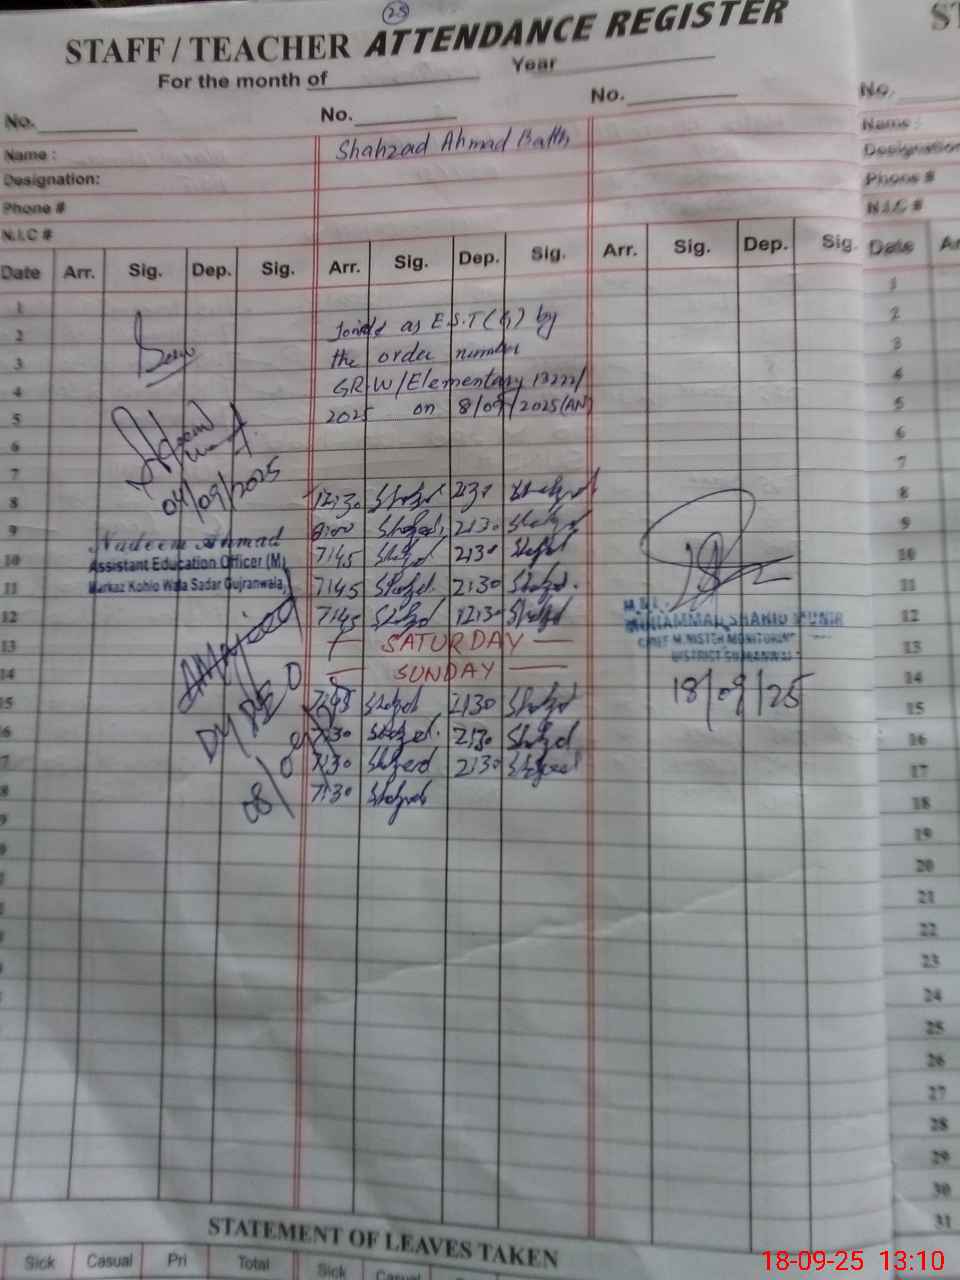 25
STAFF / TEACHER ATTENDANCE REGISTER
For the month of Year
No. No. No. No.
Name : Shahzad Ahmad Name :
Designation: Designation
Phone # Phone #
N.I.C # N.I.C #
Date Arr. Sig. Dep. Sig. Arr. Sig. Dep. Sig. Arr. Sig. Dep. Sig. Date
1 1
2 as E.S.T by 2
3 the order number 3
4 GRW/Elementary 13222/ 4
5 2025 on 8/09/2025(AN) 5
6 6
04/09/2025
7 7
8 12:30 Shahzad 2:30 Shahzad 8
9 8:00 Shahzad 2:30 Shahzad 9
Nadeem Ahmad
10 7:45 Shahzad 2:30 Shahzad 10
Assistant Education Officer (M)
11 7:45 Shahzad 2:30 Shahzad 11
Markaz Kohlo Wala Sadar Gujranwala
12 7:45 Shahzad 12:30 Shahzad 12
MUHAMMAD SHAHID MUNIR
CHIEF MINISTER MONITORING
13 SATURDAY 13
DISTRICT GUJRANWALA
14 SUNDAY 14
18/09/25
15 7:45 Shahzad 2:30 Shahzad 15
6 7:30 Shahzad 2:30 Shahzad 16
7 7:30 Shahzad 2:30 Shahzad 17
8 7:30 Shahzad 18
08/09
9 19
20
21
22
23
24
25
26
27
28
29
30
31
STATEMENT OF LEAVES TAKEN
Sick Casual Pri Total Sick Casual
18-09-25 13:10